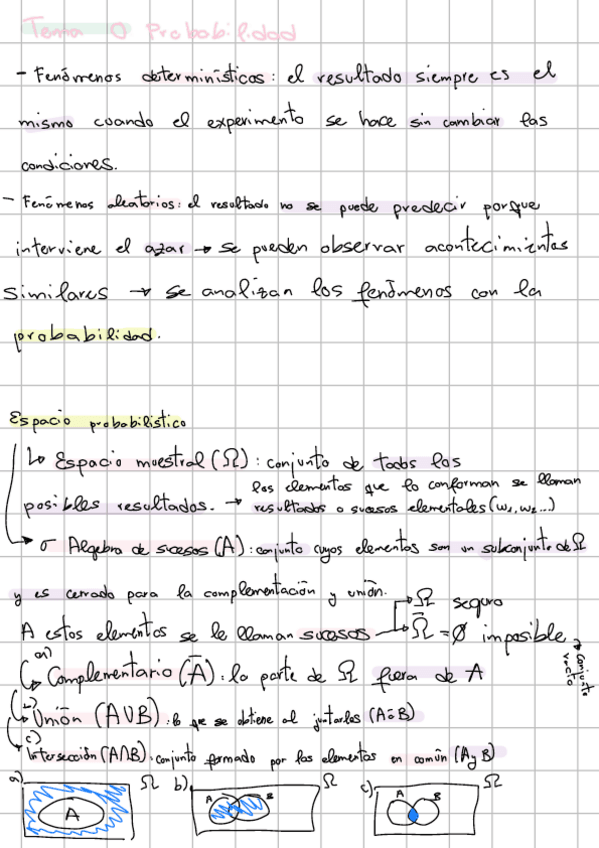 Tema 0 Probabilidad
- Fenómenos determinísticos: el resultado siempre es el
mismo cuando el experimento se hace sin cambiar las
condiciones.
- Fenómenos aleatorios: el resultado no se puede predecir porque
interviene el azar → se pueden observar acontecimientos
similares → se analizan los fenómenos con la
probabilidad.
Espacio probabilístico
↳ Espacio muestral (Ω): conjunto de todos los
posibles resultados. → los elementos que lo conforman se llaman
resultados o sucesos elementales (w₁, w₂...)
→ σ Algebra de sucesos (A): conjunto cuyos elementos son un subconjunto de Ω
y es cerrado para la complementación y unión.
A estos elementos se le llaman sucesos → Ω seguro
→ Ω̅ = Ø imposible → conjunto vacío
a) → Complementario (A̅): la parte de Ω fuera de A
b) → Unión (A∪B): lo que se obtiene al juntarlos (A o B)
c) → Intersección (A∩B): conjunto formado por los elementos en común (A y B)
a) A Ω
b) A B Ω
c) A B Ω